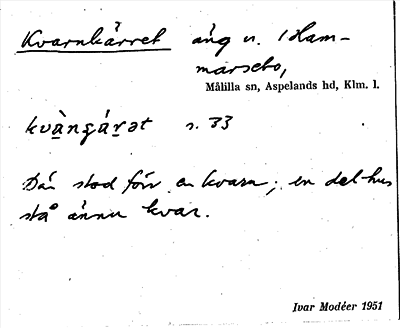 Kvarnkärret äng u. Ham-
marsebo,
Målilla sn, Aspelands hd, Klm. l.
s. 33
Där stod förr en kvarn; en del hus
stå ännu kvar.
Ivar Modéer 1951